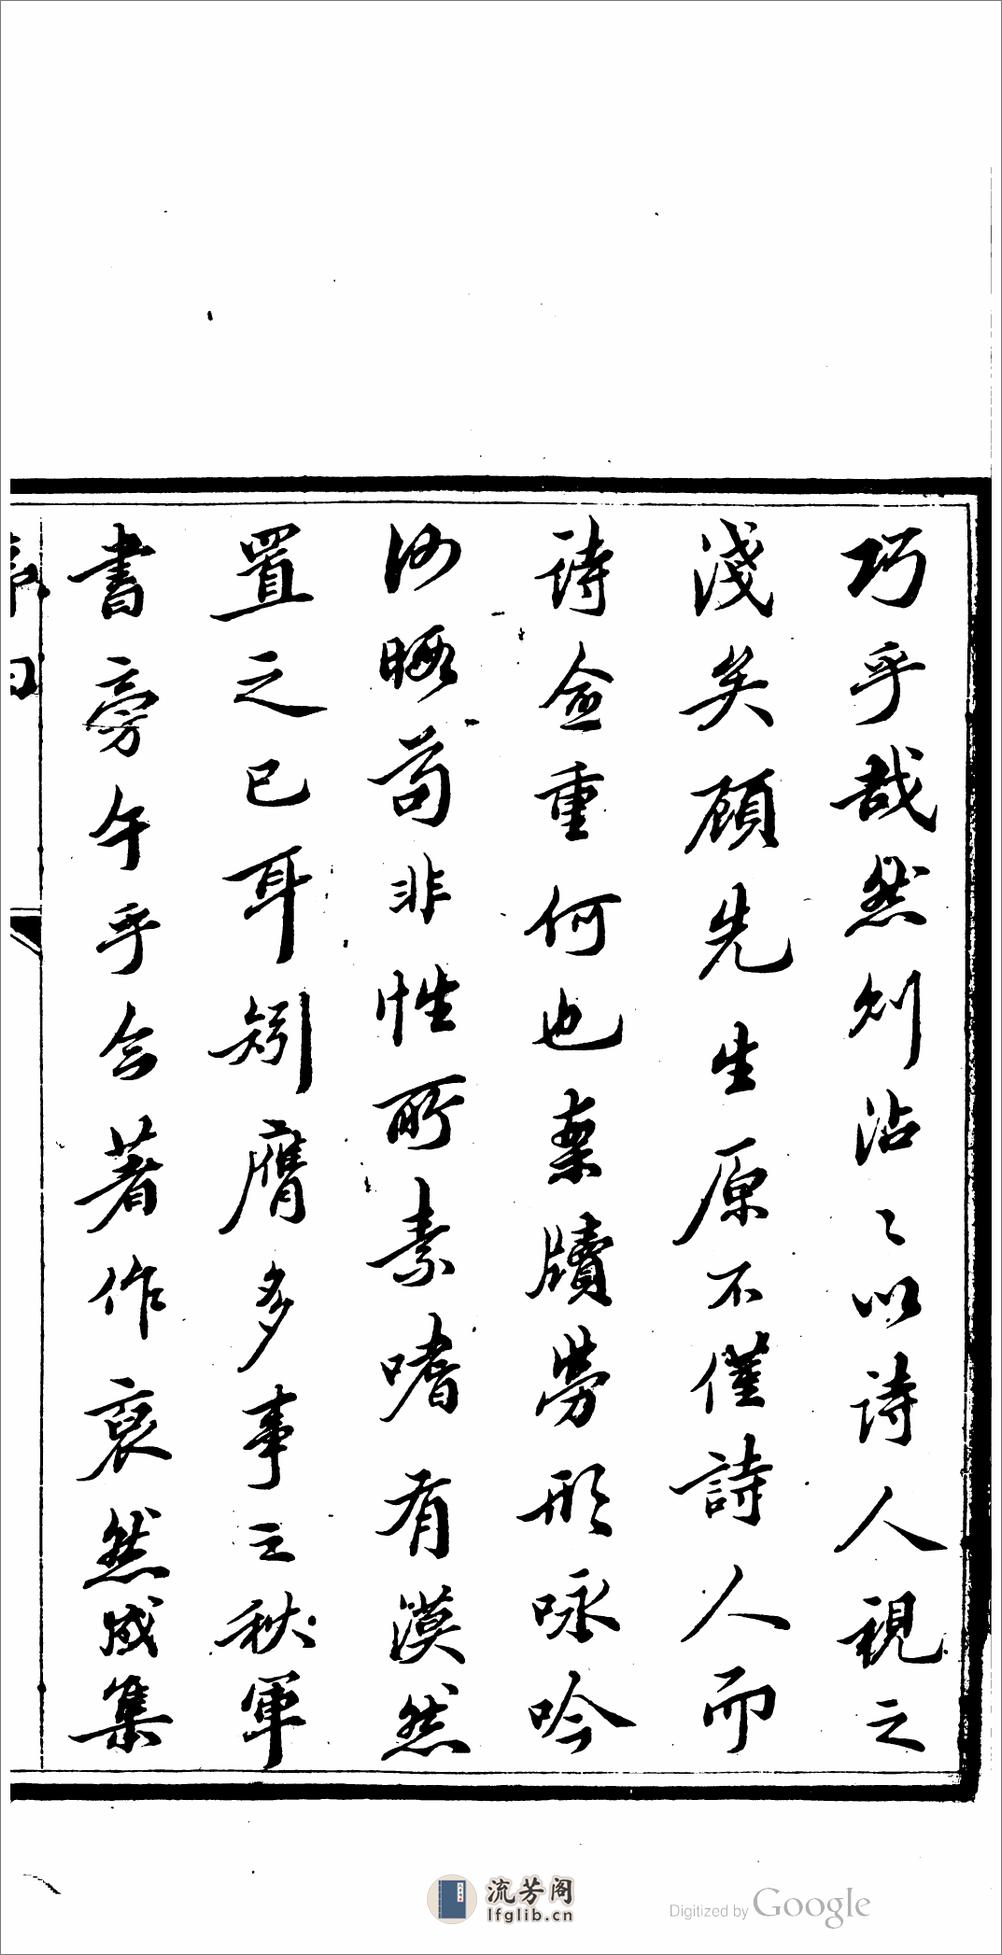 巧乎哉然則沾〻以詩人視之
淺矣顧先生原不僅詩人而
詩益重何也案牘勞形咏吟
何暇苟非性所素嗜有漠然
置之已耳矧膺多事之秋軍
書旁午乎今著作裒然成集
流芳阁
lfglib.cn
Digitized by Google